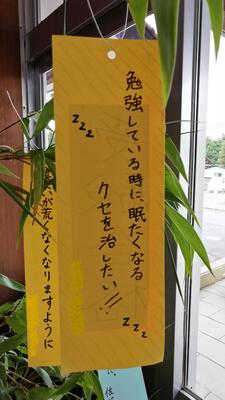 勉強している時に、眠たくなる
クセを治したい!!!
zzz
zzz
が荒くなくなりますように